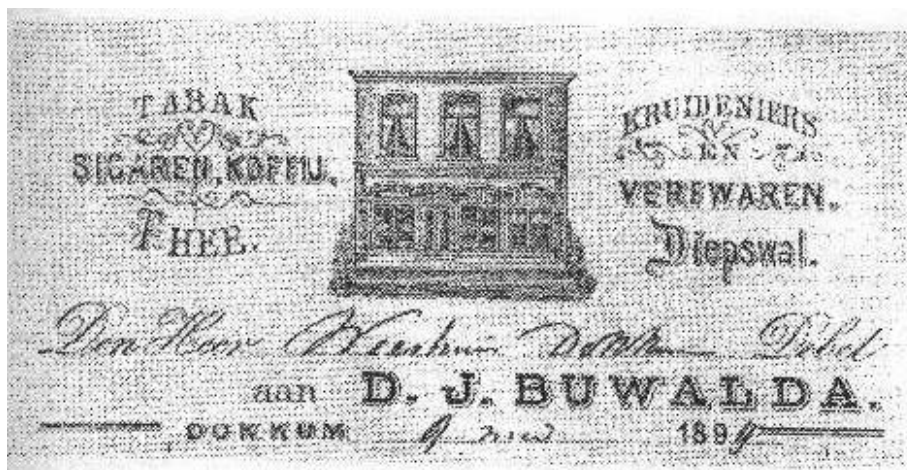 TABAK
SIGAREN, KOFFIJ.
THEE.
KRUIDENIERS
EN
VERFWAREN.
Diepswal.
Den Heer Weeshuis Dokkum Debet
aan D. J. BUWALDA.
DOKKUM 9 1899